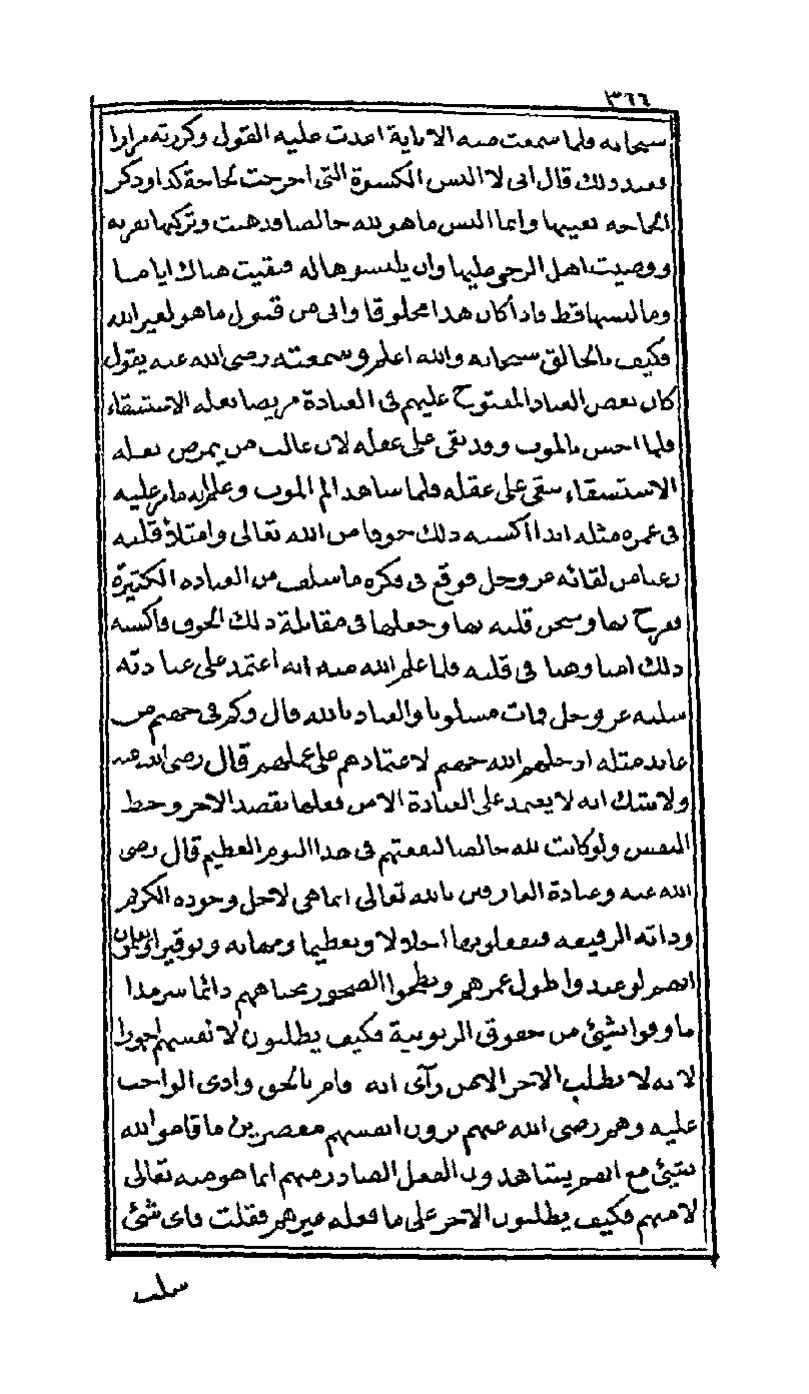 ٣٦٦
سبحانه فلما سمعت منه الاباية اعدت عليه القول وكررته مرارا
فعند ذلك قال انى لا البس الكسوة التى اخرجت لحاجة كذا وذكر
الحاجه بعينها وانما البس ماهو لله خالصا فذهبت وتركتها بقربه
ووصيت اهل الرحى عليها وان يلبسوها له فبقيت هناك اياما
وما لبسها قط فاذا كان هذا مخلوقا وابى من قبول ما هو لغير الله
فكيف بالخالق سبحانه والله اعلم وسمعته رضى الله عنه يقول
كان بعض العباد المفتوح عليهم فى العبادة مريضا بعله الاستسقاء
فلما احس بالموت وقد بقى على عقله لان غالب من يمرض بعله
الاستسقاء يبقى على عقله فلما شاهد الم الموت وعلم انه ما مر عليه
فى عمره مثله ابدا اكسبه ذلك خوفا من الله تعالى وامتلأ قلبه
رعبا من لقائه عز وجل فوقع فى فكره ما سلف من العباده الكثيرة
ففرح بها وسخن قلبه بها وجعلها فى مقابلة ذلك الخوف فاكسبه
ذلك امنا وهنا فى قلبه فلما علم الله منه انه اعتمد على عبادته
سلبه عز وجل فمات مسلوبا والعياذ بالله قال وكم فى جهنم من
عابد مثله ادخلهم الله جهنم لاعتمادهم على عملهم قال رضى الله عنه
ولا شك انه لا يعتمد على العبادة الا من فعلها بقصد الاجر وحظ
النفس ولو كانت لله خالصا لنفعتهم فى هذا اليوم العظيم قال رضى
الله عنه وعبادة العارفين بالله تعالى انما هى لاجل وجوده الكريم
وذاته الرفيعه فيفعلونها اجلالا وتعظيما ومهابه وتوقيرا ويعلمون
انهم لو عبدوا طول عمرهم ونطحوا الصخور بجباههم دائما سرمدا
ما وفوا بشئ من حقوق الربوبية فكيف يطلبون لانفسهم اجورا
لانه لا يطلب الاجر الا من رآى انه قام بالحق وادى الواجب
عليه وهم رضى الله عنهم يرون انفسهم مقصرين ما قاموا لله
بشئ مع انهم يشاهدون الفعل الصادر منهم انما هو منه تعالى
لا منهم فكيف يطلبون الاجر على ما فعله غيرهم فقلت فاى شئ
سلب